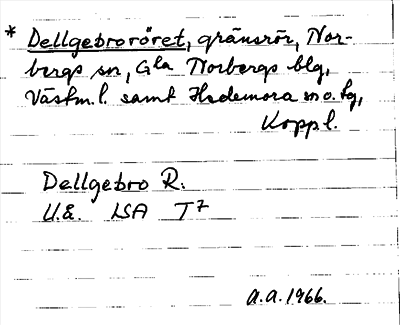 * Dellgebroröret, gränsrör, Nor-
bergs sn, Gla Norbergs blg,
Västm. l. samt Hedemora sn o. tg,
Kopp. l.
Dellgebro R:
U.å. LSA T7
A.A. 1966.